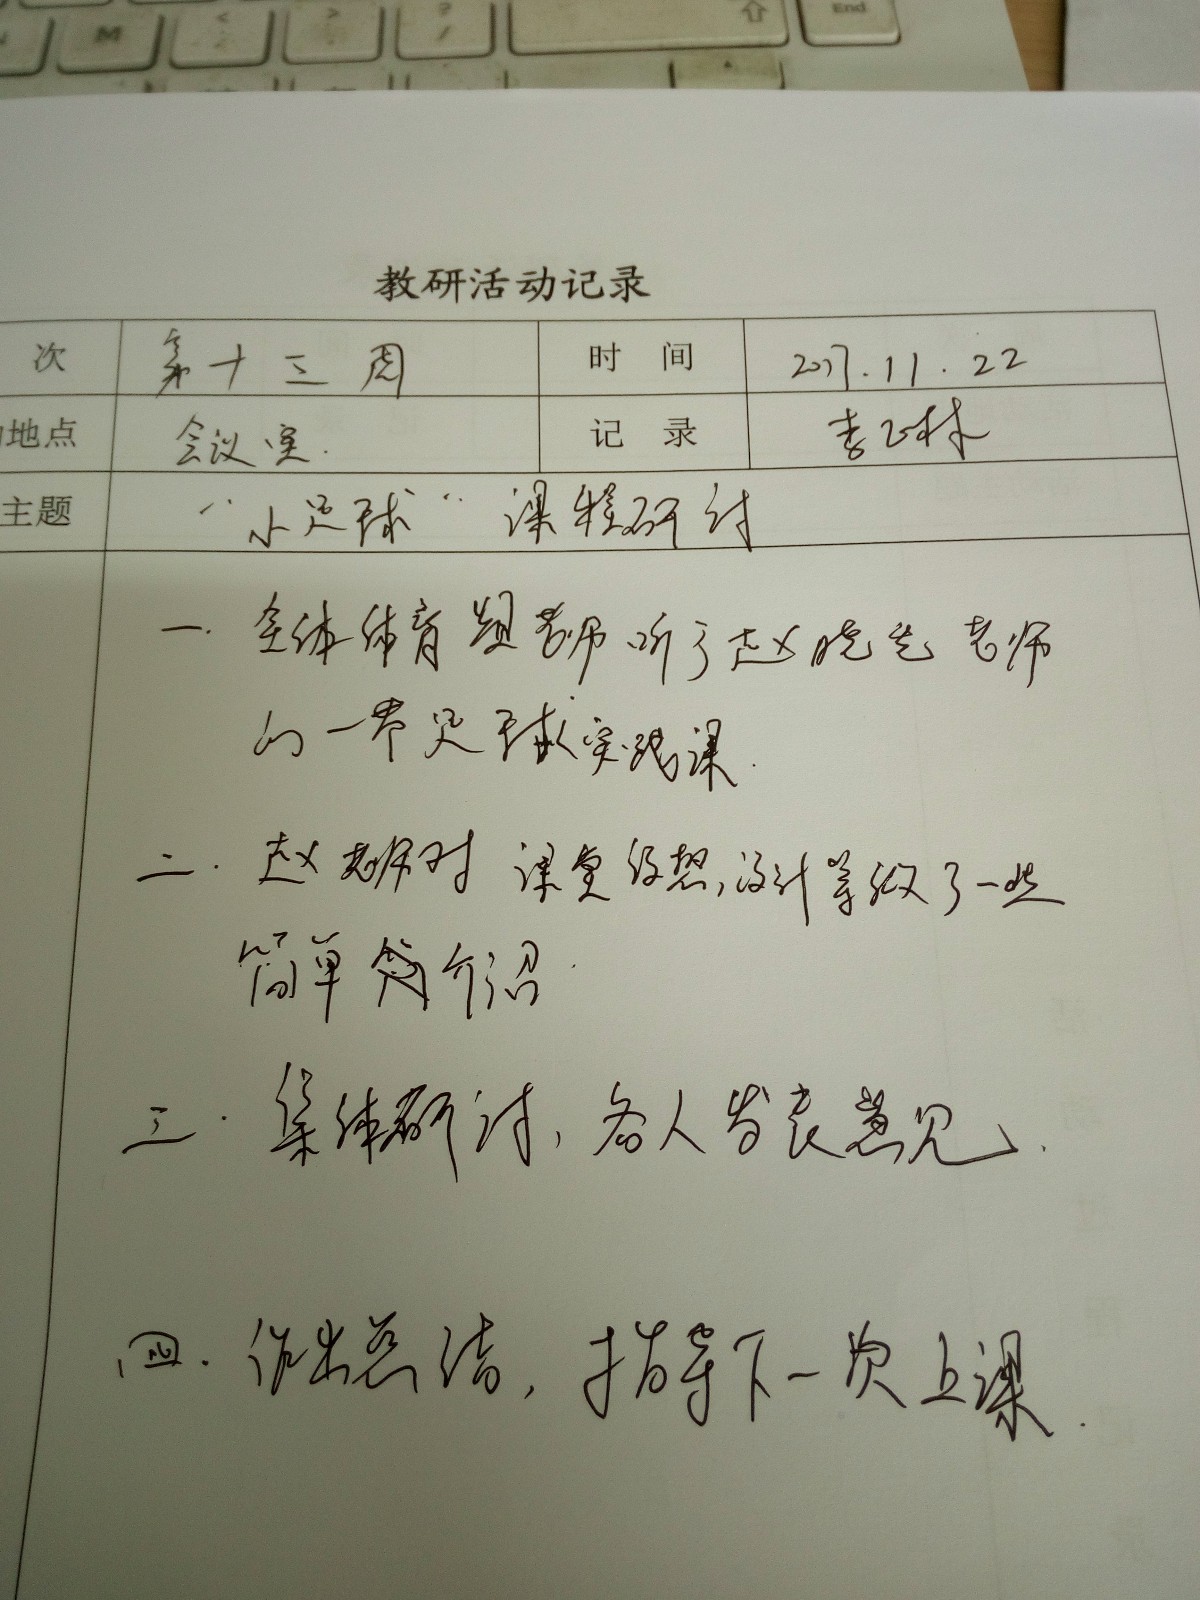 M < > ? / End
教研活动记录
次 第十三周 时间 2017.11.22
地点 会议室. 记录 李正林
主题 “小足球” 课程研讨
一. 全体体育组老师听了赵晓先老师
的一节足球实践课.
二. 赵老师对 课堂设想,设计等做了一些
简单的介绍.
三. 集体研讨, 各人发表意见.
四. 作出总结, 指导下一次上课.